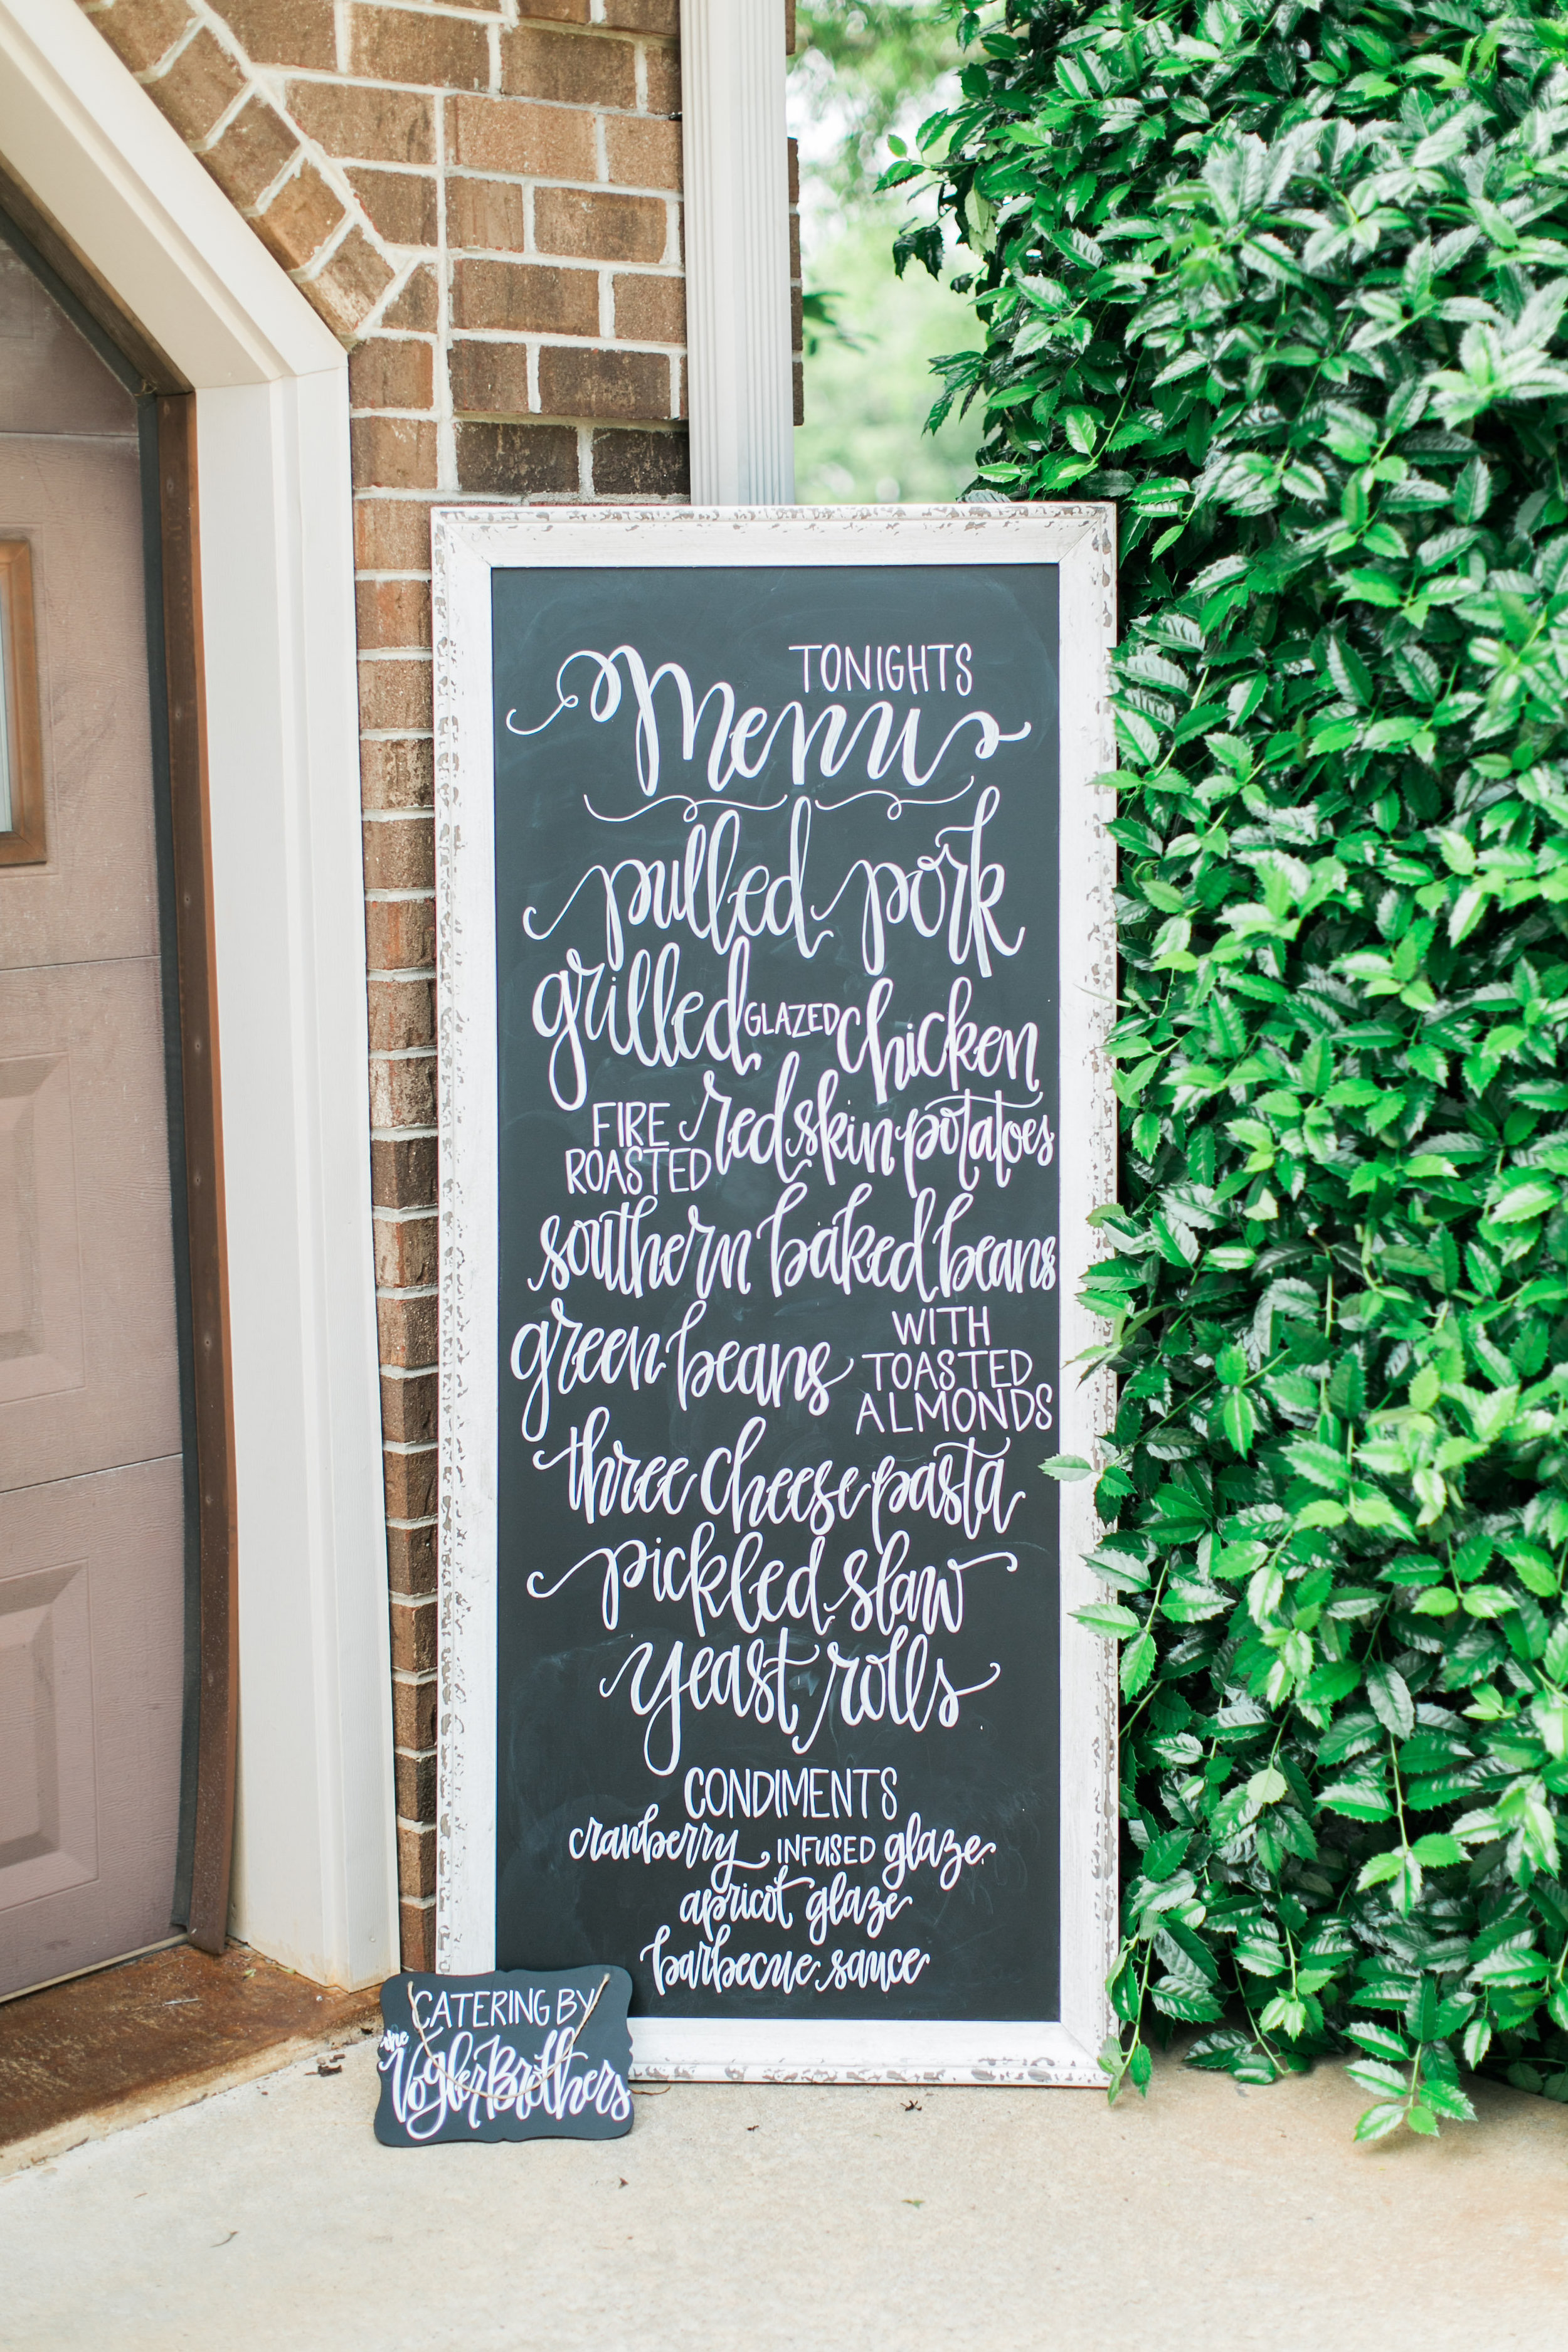 TONIGHTS
Menu
pulled pork
grilled GLAZED chicken
FIRE ROASTED redskin potatoes
southern baked beans
green beans WITH TOASTED ALMONDS
three cheese pasta
pickled slaw
yeast rolls
CONDIMENTS
cranberry INFUSED glaze
apricot glaze
barbecue sauce
CATERING BY
the Vogler Brothers